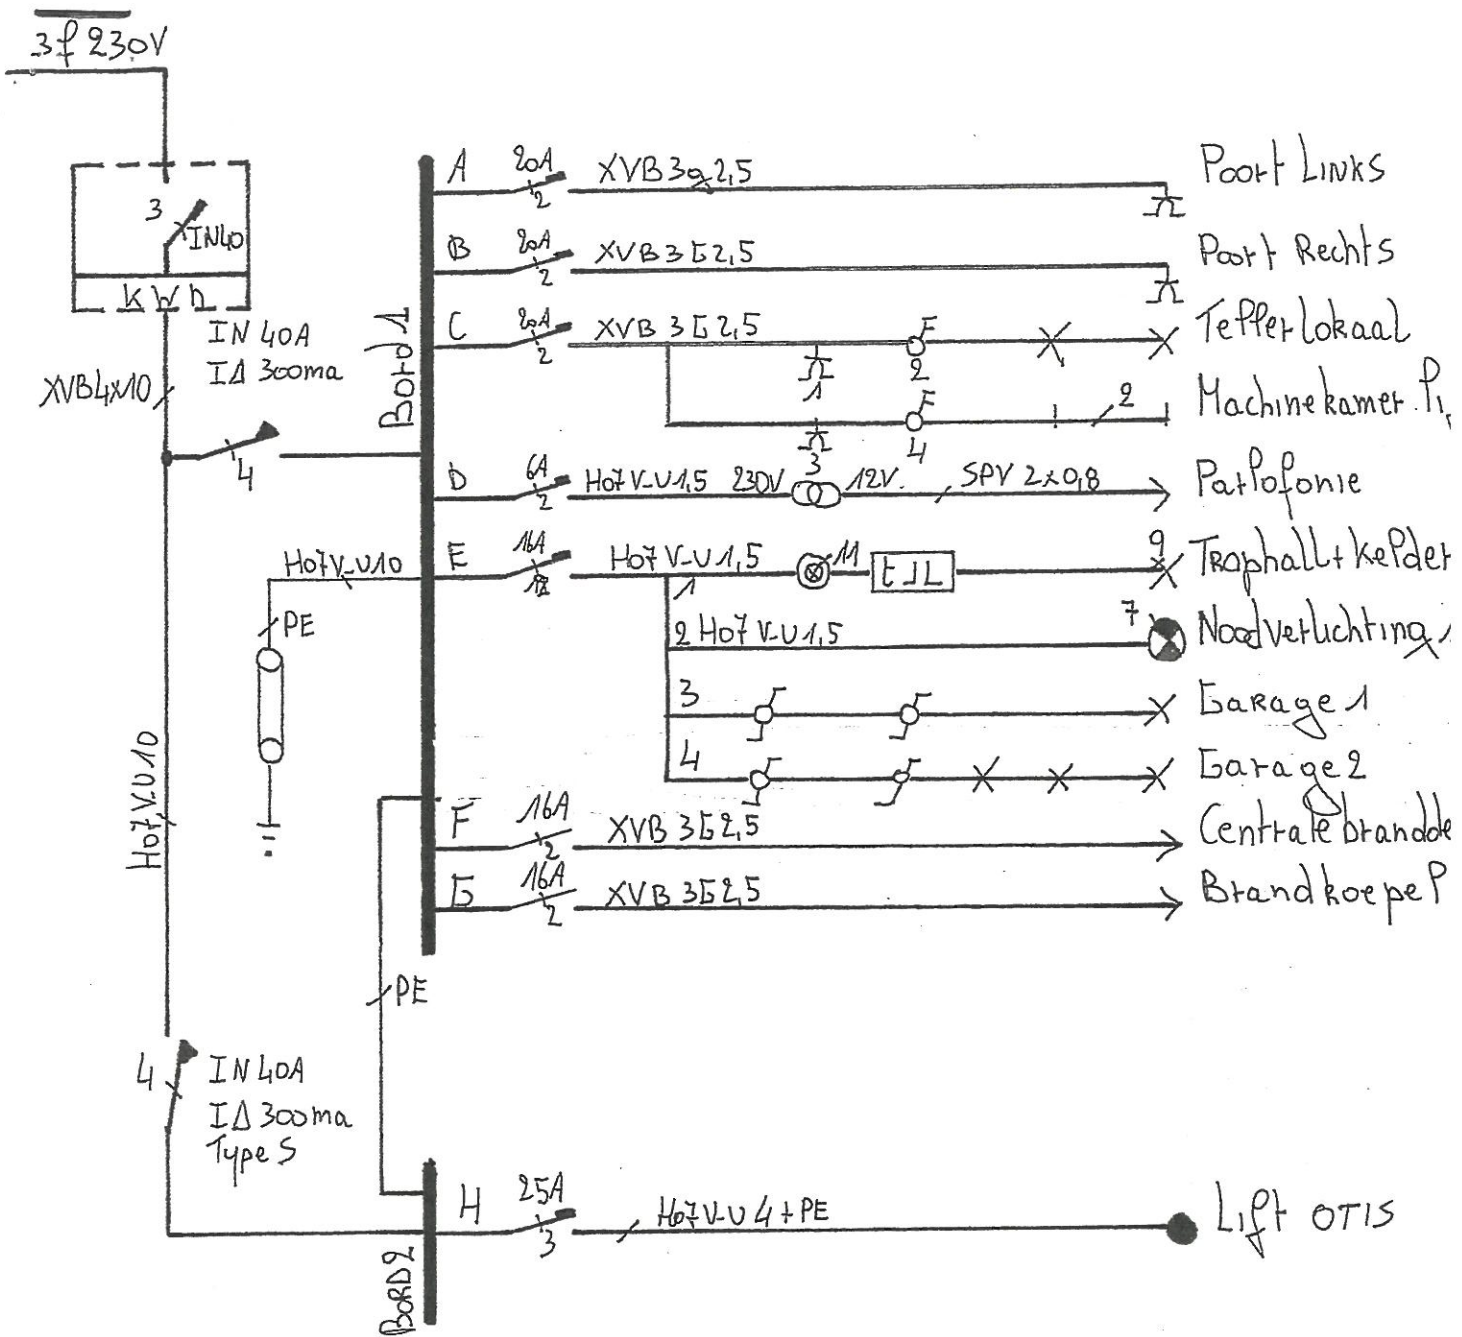 3f 230V
3
IN40
KWh
IN 40A
IΔ 300ma
XVB4x10
4
Bord 1
A 20A 2 XVB 3g2,5 Poort LINKS
B 20A 2 XVB 3G2,5 Poort Rechts
C 20A 2 XVB 3G2,5 1 2 Tellerlokaal
3 4 2 Machinekamer
D 6A 2 H07V-U1,5 230V 12V. SPV 2x0,8 Parlofonie
H07V-U10
PE
E 16A H07V-U1,5 1 11 9 Traphall+kelder
2 H07V-U1,5 7 Noodverlichting
3 Garage 1
4 Garage 2
H07V-U10
F 16A 2 XVB 3G2,5 Centrale brandde
G 16A 2 XVB 3G2,5 Brandkoepel
PE
4
IN 40A
IΔ 300ma
Type S
BORD2
H 25A 3 H07V-U 4+PE Lift OTIS